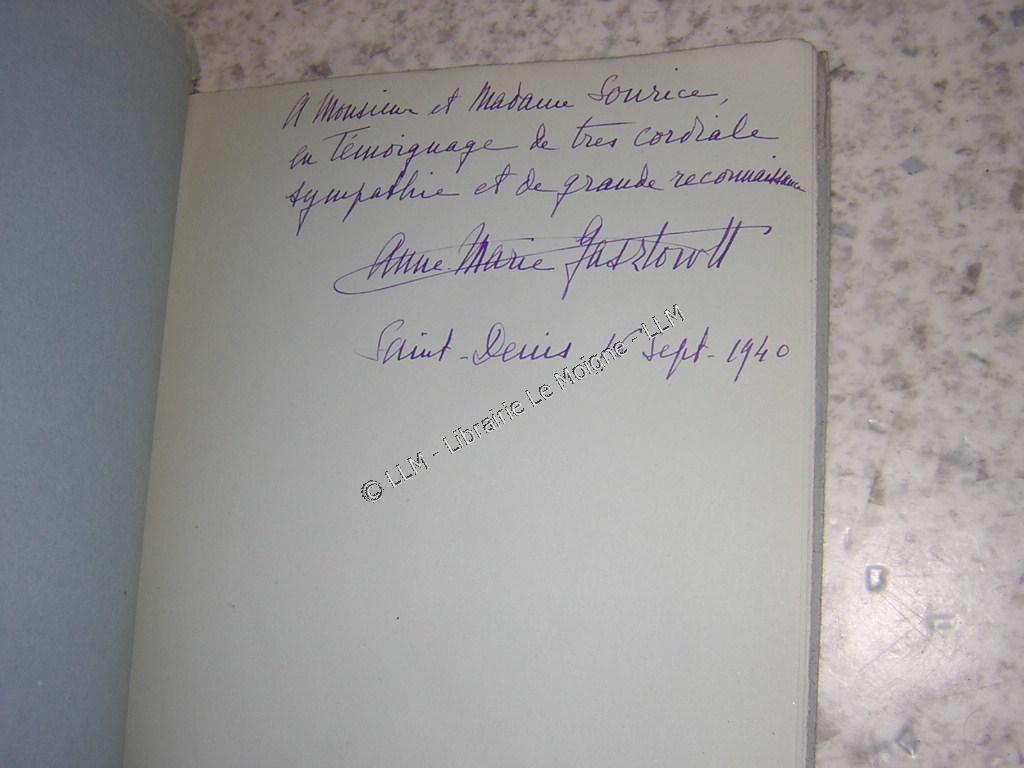 A Monsieur et Madame Sourice,
en Témoignage de très cordiale
sympathie et de grande reconnaissance
Anne Marie Gasztowtt
Saint-Denis Sept-1940
© LLM - Librairie Le Moigne - LLM